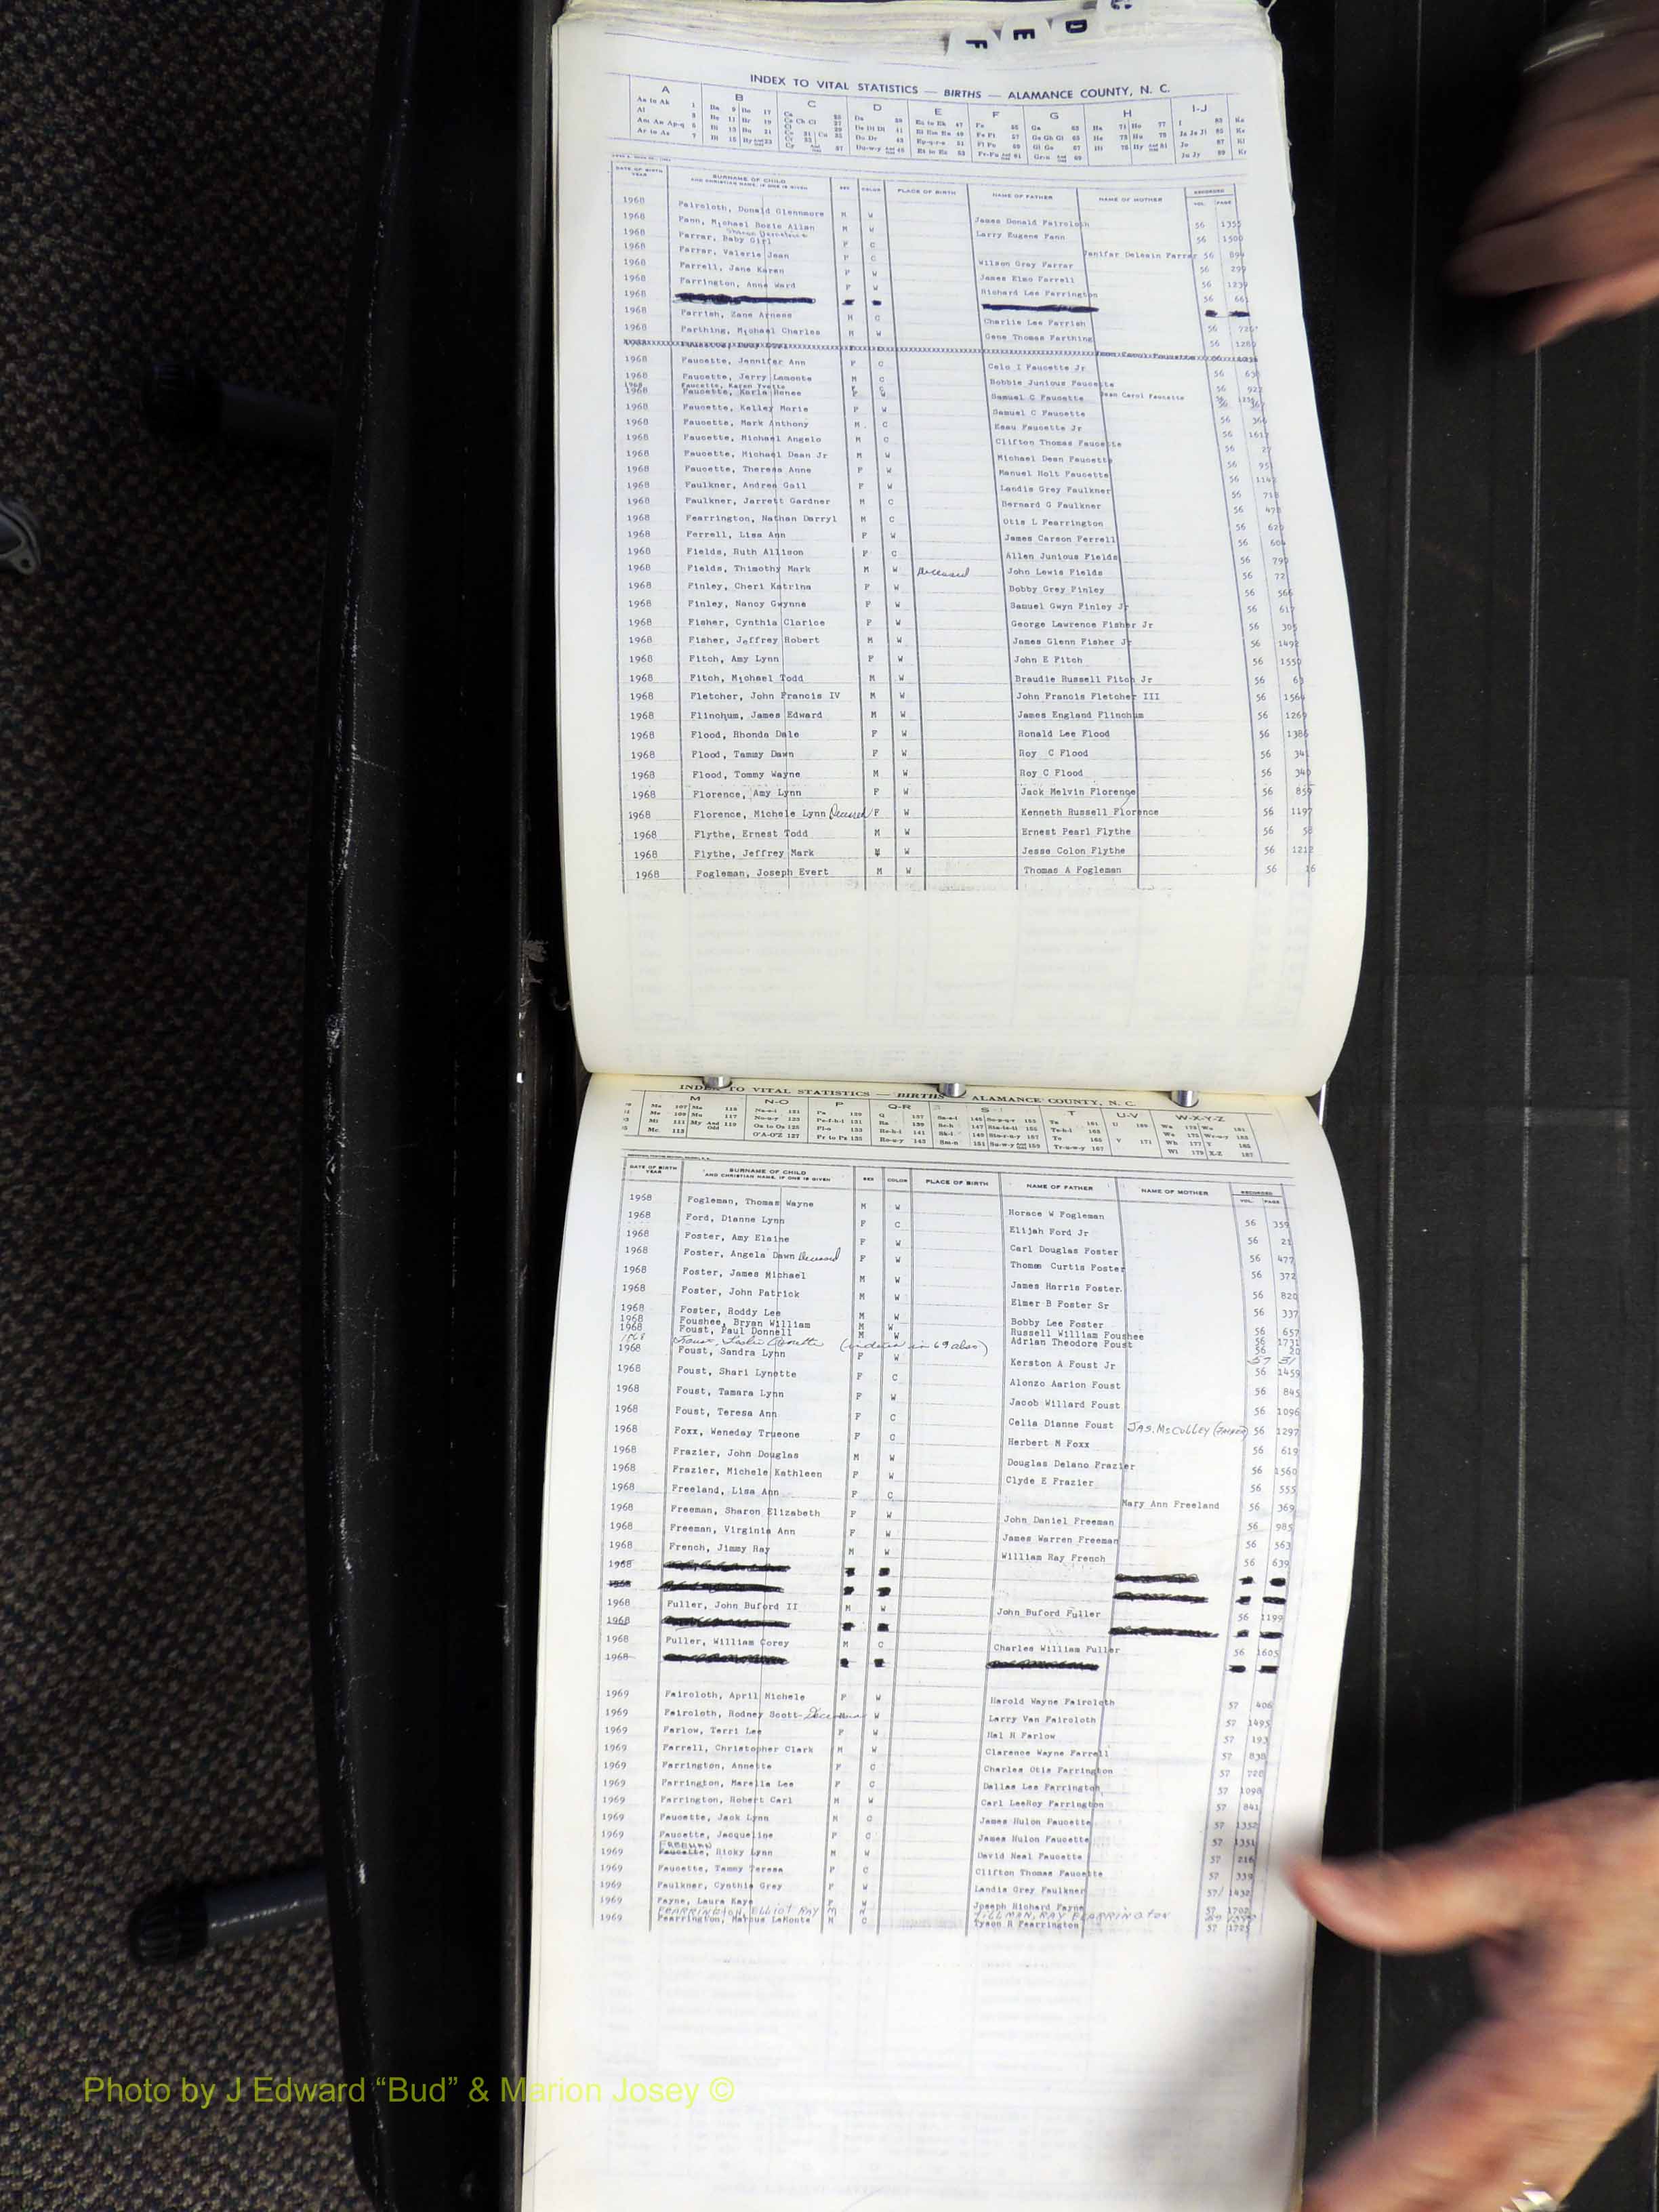 F E D C
INDEX TO VITAL STATISTICS — BIRTHS — ALAMANCE COUNTY, N. C.
A B C D E F G H I-J
DATE OF BIRTH YEAR SURNAME OF CHILD AND CHRISTIAN NAME, IF ONE IS GIVEN SEX COLOR PLACE OF BIRTH NAME OF FATHER NAME OF MOTHER RECORDED VOL. PAGE
1968 Fairoloth, Donald Glennmore M W James Donald Fairoloth 56 1355
1968 Fann, Michael Rozie Allen M W Larry Eugene Fann 56 1500
1968 Farrar, Baby Girl F C Jenifer Delsein Farrar 56 899
1968 Farrar, Valerie Jean F C Wilson Gray Farrar 56 299
1968 Farrell, Jane Karen F W James Elmo Farrell 56 1239
1968 Farrington, Anne Ward F W Richard Lee Farrington 56 66
1968
1968 Farrish, Zane Arness M C Charlie Lee Farrish 56
1968 Farthing, Michael Charles M W Gene Thomas Farthing 56 1280
1968 Faucette, Jennifer Ann F C Celo I Faucette Jr 56
1968 Faucette, Jerry Lamonte M C Bobbie Junious Faucette 56 922
1968 Faucette, Karen Yvette F C Jean Carol Faucette
1968 Faucette, Karla Renee F W Samuel C Faucette 56 367
1968 Faucette, Kelley Marie F W Samuel C Faucette 56 366
1968 Faucette, Mark Anthony M C Esau Faucette Jr 56 1612
1968 Faucette, Michael Angelo M C Clifton Thomas Faucette 56 27
1968 Faucette, Michael Dean Jr M W Michael Dean Faucette 56 95
1968 Faucette, Theresa Anne F W Manuel Holt Faucette 56 1142
1968 Faulkner, Andrea Gail F W Landis Grey Faulkner 56 718
1968 Faulkner, Jarrett Gardner M C Bernard G Faulkner 56 478
1968 Fearrington, Nathan Darryl M C Otis L Fearrington 56 620
1968 Ferrell, Lisa Ann F W James Carson Ferrell 56 604
1968 Fields, Ruth Allison F C Allen Junious Fields 56 790
1968 Fields, Thimothy Mark M W Deceased John Lewis Fields 56 72
1968 Finley, Cheri Katrina F W Bobby Grey Finley 56 566
1968 Finley, Nancy Gwynne F W Samuel Gwyn Finley Jr 56 617
1968 Fisher, Cynthia Clarice F W George Lawrence Fisher Jr 56 305
1968 Fisher, Jeffrey Robert M W James Glenn Fisher Jr 56 1492
1968 Fitch, Amy Lynn F W John E Fitch 56 1550
1968 Fitch, Michael Todd M W Braudie Russell Fitch Jr 56 63
1968 Fletcher, John Francis IV M W John Francis Fletcher III 56 1564
1968 Flinchum, James Edward M W James England Flinchum 56 1269
1968 Flood, Rhonda Dale F W Ronald Lee Flood 56 1386
1968 Flood, Tammy Dawn F W Roy C Flood 56 341
1968 Flood, Tommy Wayne M W Roy C Flood 56 340
1968 Florence, Amy Lynn F W Jack Melvin Florence 56 859
1968 Florence, Michele Lynn Deceased F W Kenneth Russell Florence 56 1197
1968 Flythe, Ernest Todd M W Ernest Pearl Flythe 56 58
1968 Flythe, Jeffrey Mark M W Jesse Colon Flythe 56 1212
1968 Fogleman, Joseph Evert M W Thomas A Fogleman 56 16
INDEX TO VITAL STATISTICS — BIRTHS — ALAMANCE COUNTY, N. C.
M N-O P Q-R S T U-V W-X-Y-Z
DATE OF BIRTH YEAR SURNAME OF CHILD AND CHRISTIAN NAME, IF ONE IS GIVEN SEX COLOR PLACE OF BIRTH NAME OF FATHER NAME OF MOTHER RECORDED VOL. PAGE
1968 Fogleman, Thomas Wayne M W Horace W Fogleman 56 359
1968 Ford, Dianne Lynn F C Elijah Ford Jr 56 21
1968 Foster, Amy Elaine F W Carl Douglas Foster 56 477
1968 Foster, Angela Dawn Deceased F W Thomas Curtis Foster 56 372
1968 Foster, James Michael M W James Harris Foster 56 820
1968 Foster, John Patrick M W Elmer B Foster Sr 56 337
1968 Foster, Roddy Lee M W Bobby Lee Foster 56 657
1968 Foushee, Bryan William M W Russell William Foushee 56 1731
1968 Foust, Paul Donnell M W Adrian Theodore Foust 56 20
1968 Foust, Leslie (indexed in 69 also) 57 31
1968 Foust, Sandra Lynn F W Kerston A Foust Jr 56 1459
1968 Foust, Shari Lynette F C Alonzo Aarion Foust 56 845
1968 Foust, Tamara Lynn F W Jacob Willard Foust 56 1096
1968 Foust, Teresa Ann F C Celia Dianne Foust JAS. McCULLEY (FATHER) 56 1297
1968 Foxx, Weneday Trueone F C Herbert M Foxx 56 619
1968 Frazier, John Douglas M W Douglas Delano Frazier 56 1560
1968 Frazier, Michele Kathleen F W Clyde E Frazier 56 555
1968 Freeland, Lisa Ann F C Mary Ann Freeland 56 369
1968 Freeman, Sharon Elizabeth F W John Daniel Freeman 56 985
1968 Freeman, Virginia Ann F W James Warren Freeman 56 563
1968 French, Jimmy Ray M W William Ray French 56 639
1968
1968
1968 Fuller, John Buford II M W John Buford Fuller 56 1199
1968
1968 Fuller, William Corey M C Charles William Fuller 56 1605
1968
1969 Fairoloth, April Michele F W Harold Wayne Fairoloth 57 406
1969 Fairoloth, Rodney Scott Deceased W Larry Van Fairoloth 57 1495
1969 Farlow, Terri Lee F W Hal H Farlow 57 193
1969 Farrell, Christopher Clark M W Clarence Wayne Farrell 57 838
1969 Farrington, Annette F C Charles Otis Farrington 57 728
1969 Farrington, Marella Lee F C Dallas Lee Farrington 57 1098
1969 Farrington, Robert Carl M W Carl LeeRoy Farrington 57 841
1969 Faucette, Jack Lynn M C James Hulon Faucette 57 1352
1969 Faucette, Jacqueline F C James Hulon Faucette 57 1351
FREEMAN
1969 Faucette, Ricky Lynn M W David Neal Faucette 57 216
1969 Faucette, Tammy Teresa F C Clifton Thomas Faucette 57 339
1969 Faulkner, Cynthia Grey F W Landis Grey Faulkner 57 1432
1969 Fayne, Laura Kaye F W Joseph Richard Fayne 57 1702
FEARRINGTON, ELLIOT RAY M TILLMAN, RAY FEARRINGTON
1969 Fearrington, Marcus LaMonte M C Tyson R Fearrington 57 1725
Photo by J Edward “Bud” & Marion Josey ©